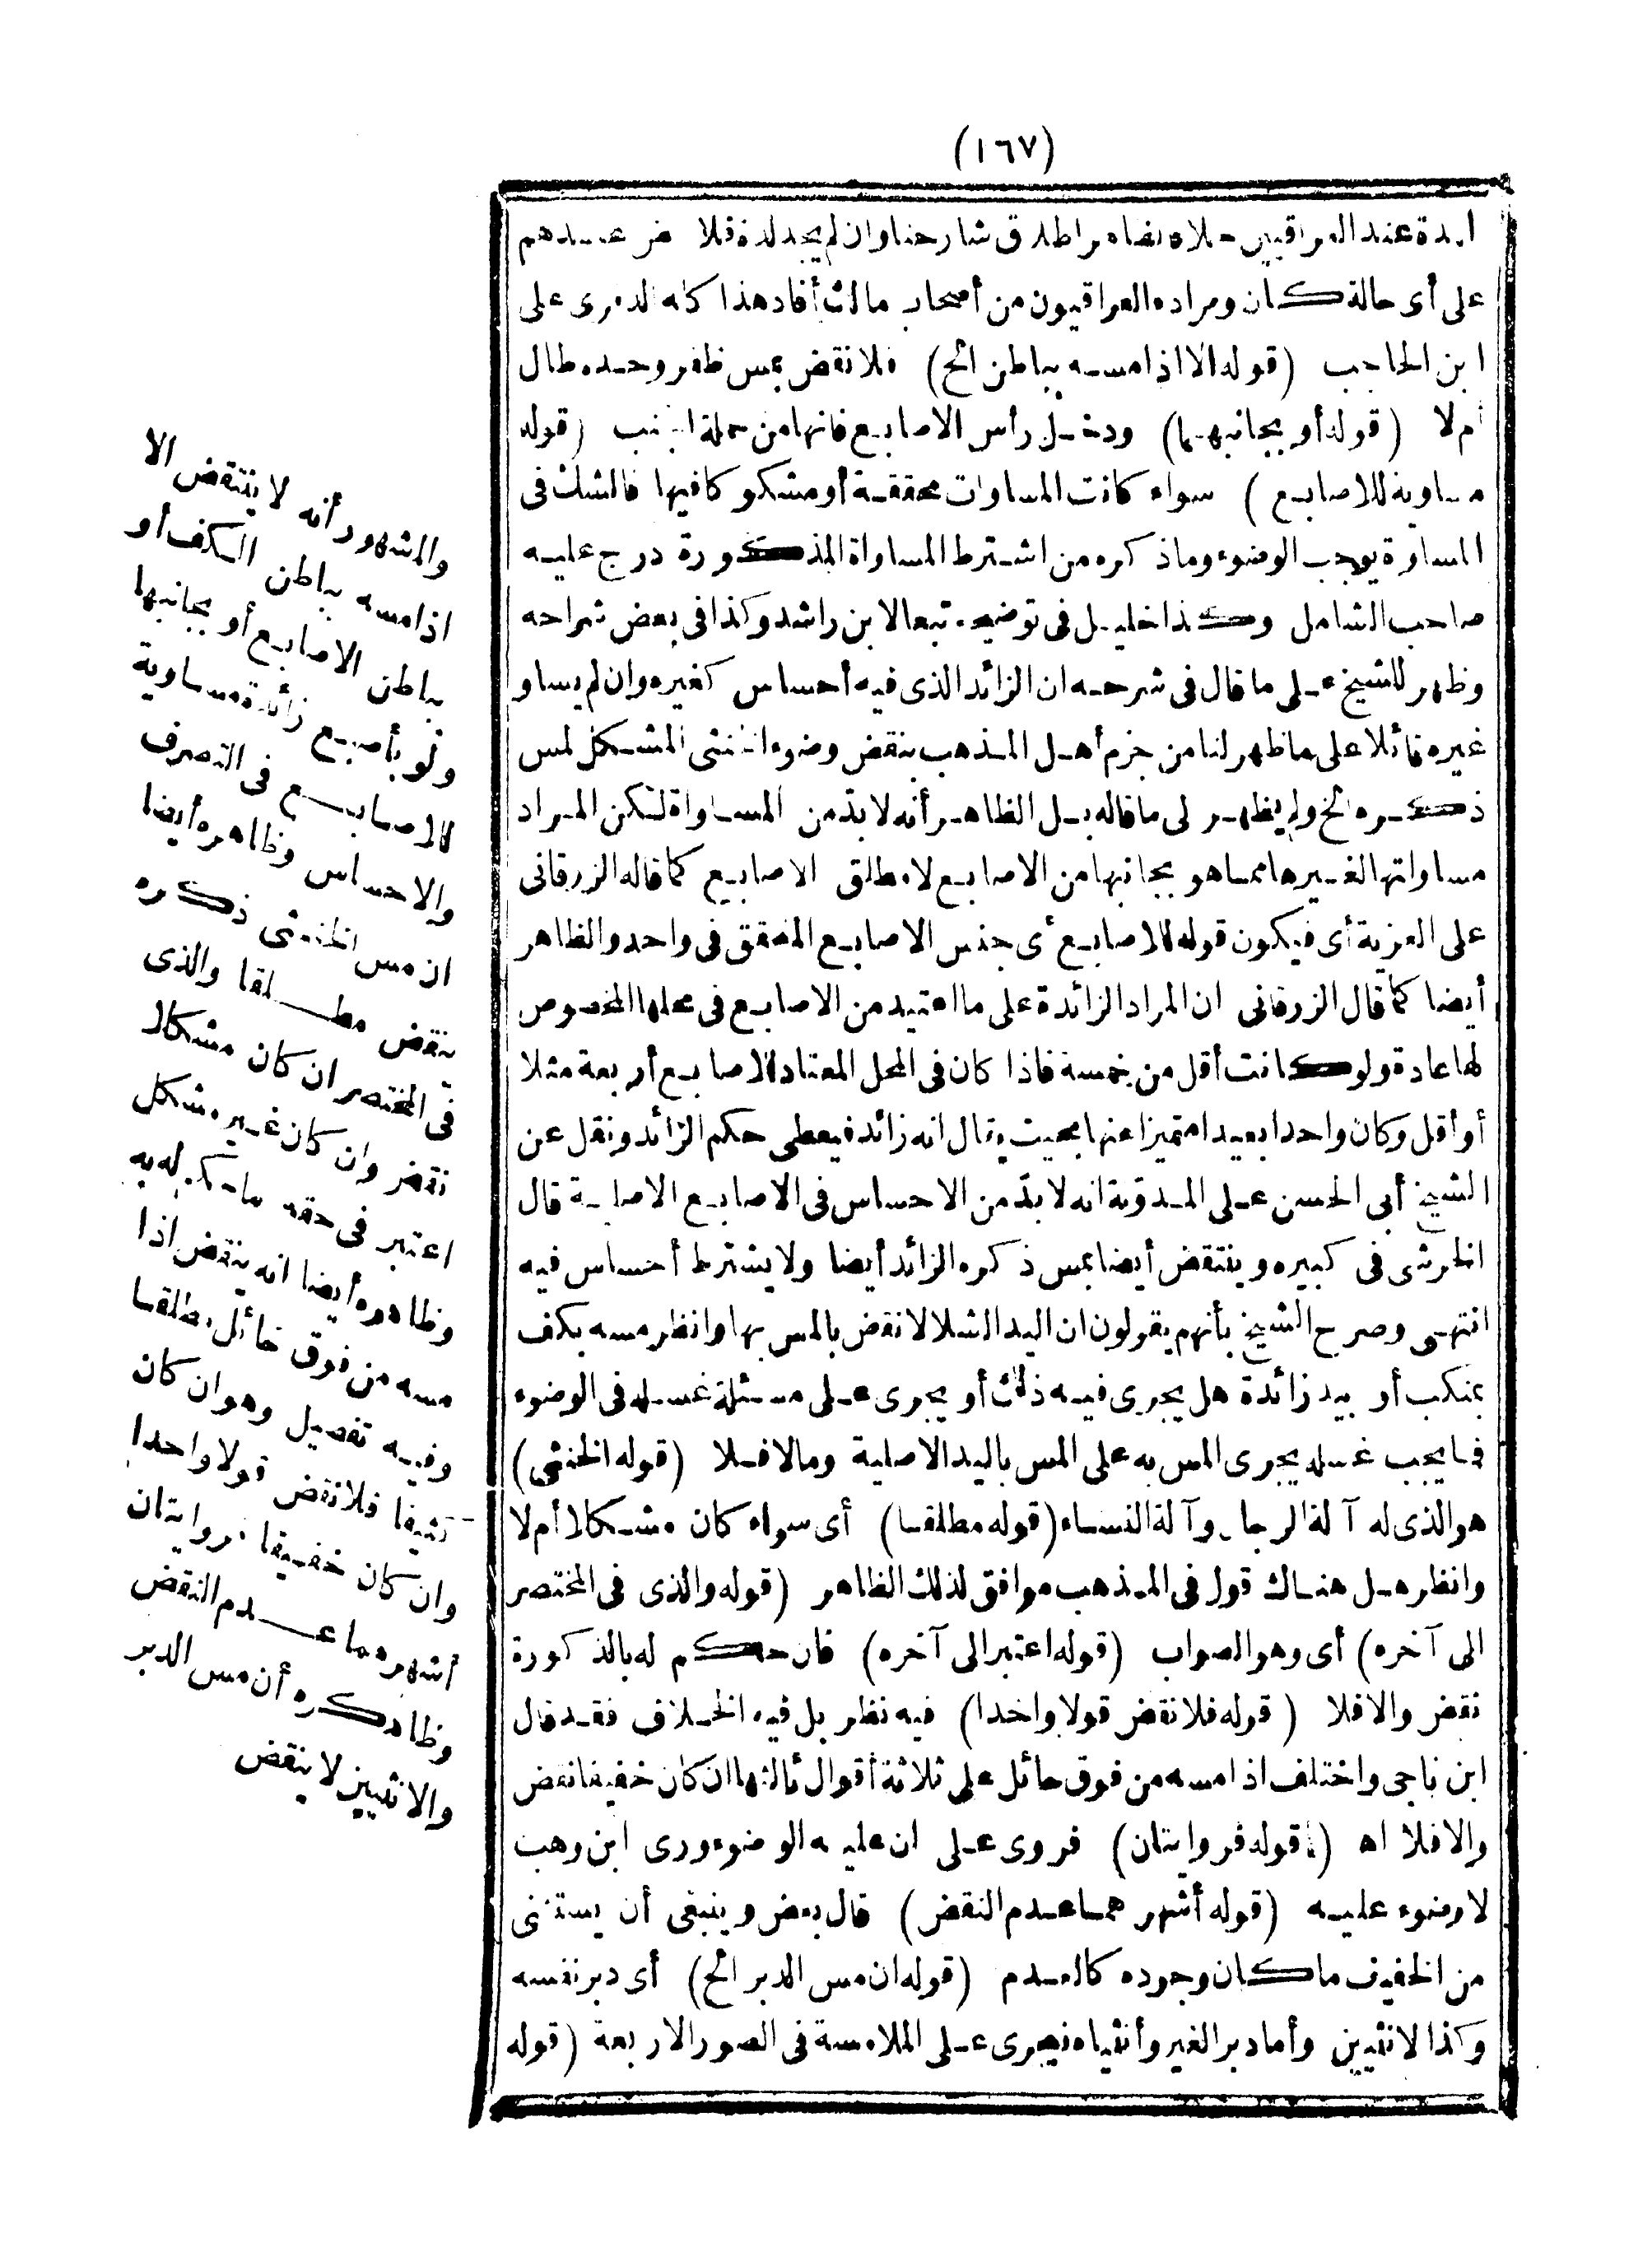 (١٦٧)
عند العراقيين شارحنا وان لم يجد لذة فلا
على أى حالة كان ومراده العراقيون من أصحاب مالك أفاد هذا كله على
ابن الحاجب (قوله الا اذا مسه بباطن الخ) فلا نقض بمس ظفر وحده طال
أم لا (قوله أو بجانبهما) ودخل رأس الاصابع فانها من جملة الجنب (قوله
مساوية للاصابع) سواء كانت المساوات محققة أو مشكوكا فيها فالشك فى
المساوة يوجب الوضوء وما ذكره من اشترط المساواة المذكورة درج عليه
صاحب الشامل وكذا خليل فى توضيحه تبعا لابن راشد وكذا فى بعض شراحه
وظهر للشيخ على ما قال فى شرحه ان الزائد الذى فيه أحساس كغيره وان لم يساو
غيره قائلا على ما ظهر لنا من جزم أهل المذهب بنقض وضوء الخنثى المشكل لمس
ذكره الخ ولم يظهر لى ما قاله بل الظاهر أنه لا بدّ من المساواة لكن المراد
مساواتها لغيرها مما هو بجانبها من الاصابع لا مطلق الاصابع كما قاله الزرقانى
على العزية أى فيكون قوله للاصابع أى جنس الاصابع المحقق فى واحد والظاهر
أيضا كما قال الزرقانى ان المراد الزائدة على ما اعتيد من الاصابع فى محلها المخصوص
لها عادة ولو كانت أقل من خمسة فاذا كان فى المحل المعتاد للاصابع أربعة مثلا
أو أقل وكان واحدا بعيدا متميزا عنها بحيث يقال انه زائد فيعطى حكم الزائد ونقل عن
الشيخ أبى الحسن على المدوّنة انه لا بدّ من الاحساس فى الاصابع الاصلية قال
الخرشى فى كبيره وينتقض أيضا بمس ذكره الزائد أيضا ولا يشترط أحساس فيه
انتهى وصرح الشيخ بأنهم يقولون ان اليد الشلا لا نقض بالمس بها وانظر مسه بكف
بمنكب أو بيد زائدة هل يجرى فيه ذلك أو يجرى على مسئلة غسله فى الوضوء
فما يجب غسله يجرى المس به على المس باليد الاصلية وما لا فلا (قوله الخنثى)
هو الذى له آلة الرجال وآلة النساء (قوله مطلقا) أى سواء كان مشكلا أم لا
وانظر هل هناك قول فى المذهب موافق لذلك الظاهر (قوله والذى فى المختصر
الى آخره) أى وهو الصواب (قوله اعتبر الى آخره) فان حكم له بالذكورة
نقض والا فلا (قوله فلا نقض قولا واحدا) فيه نظر بل فيه الخلاف فقد قال
ابن ناجى واختلف اذا مسه من فوق حائل على ثلاثة أقوال ثالثها ان كان خفيفا نقض
والا فلا اه (قوله فروايتان) فروى على ان عليه الوضوء وروى ابن وهب
لا وضوء عليه (قوله أشهرهما عدم النقض) قال بعض وينبغى أن يستثنى
من الخفيف ما كان وجوده كالعدم (قوله ان مس الدبر الخ) أى دبر نفسه
وكذا الانثيين وأما دبر الغير وأنثياه فيجرى على الملامسة فى الصور الاربعة (قوله
والمشهور أنه لا ينتقض الا
اذا مسه بباطن الكف أو
بباطن الاصابع أو بجانبها
ولو بأصبع زائدة مساوية
للاصابع فى التصرف
والاحساس وظاهره أيضا
ان مس الخنثى ذكره
ينقض مطلقا والذى
فى المختصر ان كان مشكلا
نقض وان كان غير مشكل
اعتبر فى حقه ما حكم له به
وظاهره أيضا انه ينقض اذا
مسه من فوق حائل مطلقا
وفيه تفصيل وهو ان كان
كثيفا فلا نقض قولا واحدا
وان كان خفيفا فروايتان
أشهرهما عدم النقض
أن مس الدبر
والانثيين لا ينقض